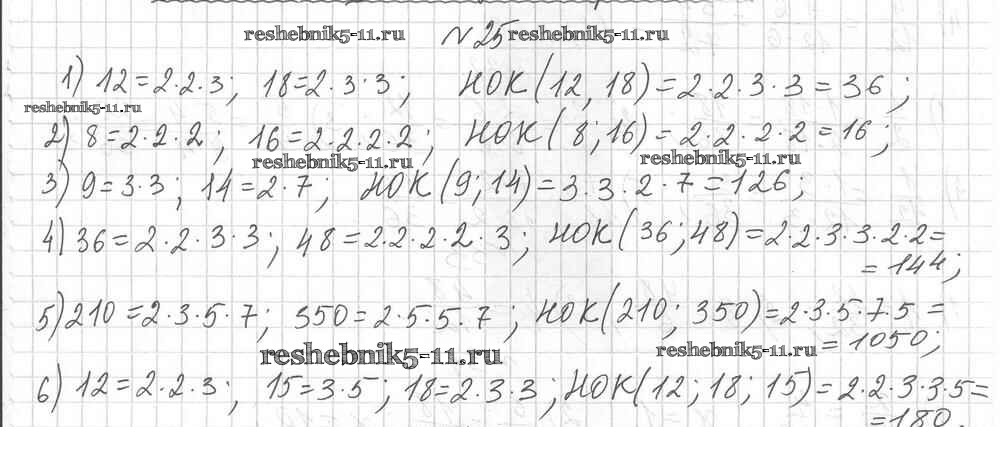 reshebnik5-11.ru №25 reshebnik5-11.ru
1) 12=2·2·3; 18=2·3·3; НОК(12, 18)=2·2·3·3=36;
reshebnik5-11.ru
2) 8=2·2·2; 16=2·2·2·2; НОК(8; 16)=2·2·2·2=16;
reshebnik5-11.ru reshebnik5-11.ru
3) 9=3·3; 14=2·7; НОК(9; 14)=3·3·2·7=126;
4) 36=2·2·3·3; 48=2·2·2·2·3; НОК(36; 48)=2·2·3·3·2·2=
=144;
5) 210=2·3·5·7; 350=2·5·5·7; НОК(210; 350)=2·3·5·7·5=
=1050;
reshebnik5-11.ru reshebnik5-11.ru
6) 12=2·2·3; 15=3·5; 18=2·3·3; НОК(12; 18; 15)=2·2·3·3·5=
=180.